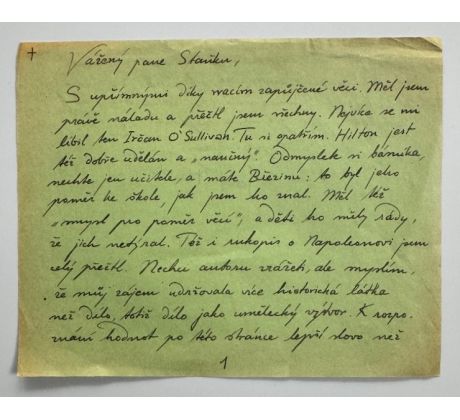 +
Vážený pane Staňku,
S upřímnými díky vracím zapůjčené věci. Měl jsem
právě náladu a přečtl jsem všechny. Nejvíce se mi
líbil ten Irčan O'Sullivan. Tu si opatřím. Hilton jest
též dobře udělán a „naučný". Odmyslete si básníka,
nechte jen učitele, a máte Březinu: to byl jeho
poměr ke škole, jak jsem ho znal. Měl též
„smysl pro poměr věcí", a děti ho měly rády,
že jich netýral. Též i rukopis o Napoleonovi jsem
celý přečtl. Nechci autoru vzážeti, ale myslím,
že můj zájem udržovala více historická látka
než dílo, totiž dílo jako umělecký výtvor. K rozpo-
znání hodnot po této stránce lepší slovo než
1